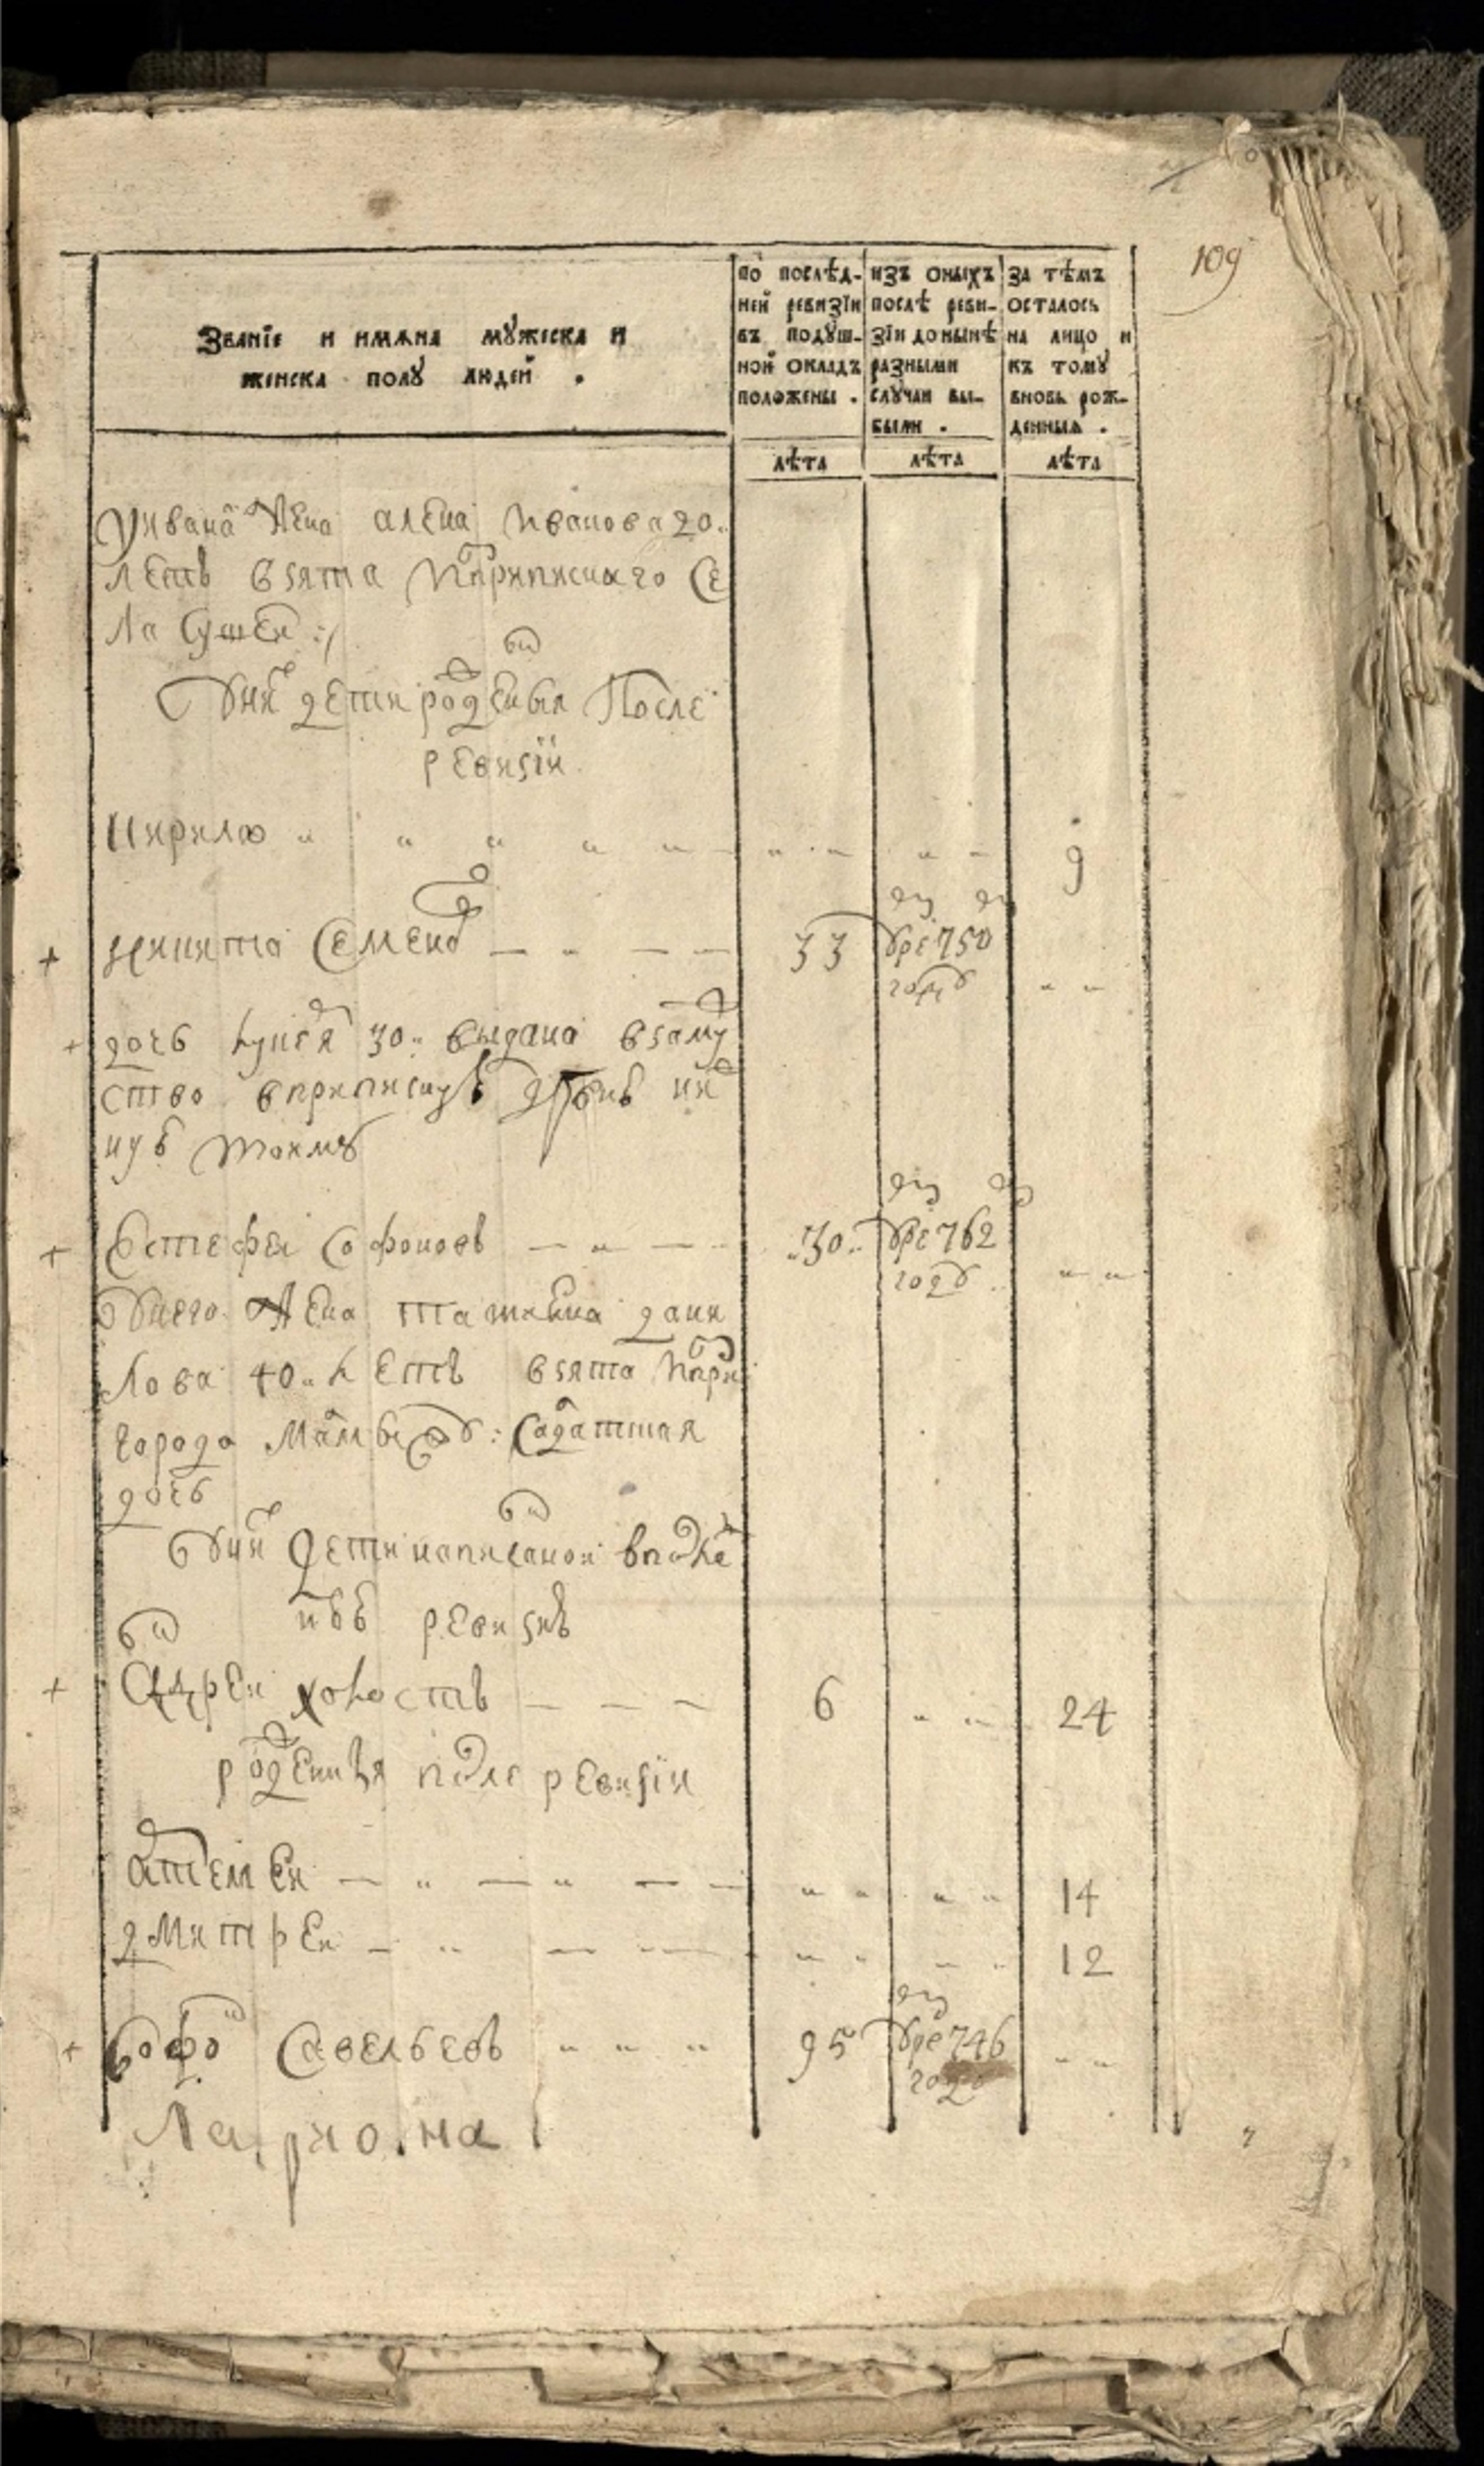 109
Званїе и имѧна мꙋжеска и
женска полꙋ людей .
по послѣд-
ней ревизїи
въ подꙋш-
ной окладъ
положены .
изъ оныхъ
послѣ реви-
зїи до нынѣ
разными
слꙋчаи вы-
были .
за тѣмъ
осталось
на лицо и
къ томꙋ
вновь рож-
денныѧ .
лѣта
лѣта
лѣта
у ивана жена алена иванова 20
летъ взята приписнаго се
ла
у них дети рожденныя После
ревизїи
кирило 9
никита Семенов 33 умре 750
году
дочь 30 выдана взаму
ство вприписную
Естефеи Софонов 30 умре 762
году
у него жена татьяна дани
лова 40 летъ взята
города салдатская
дочь
у них дети написаной впреж
ревизиѣ
андреи холостъ 6 24
рожденныя после ревизїи
артемеи 14
дмитреи 12
Софон Савельевъ 95 умре 746
году
Лариона